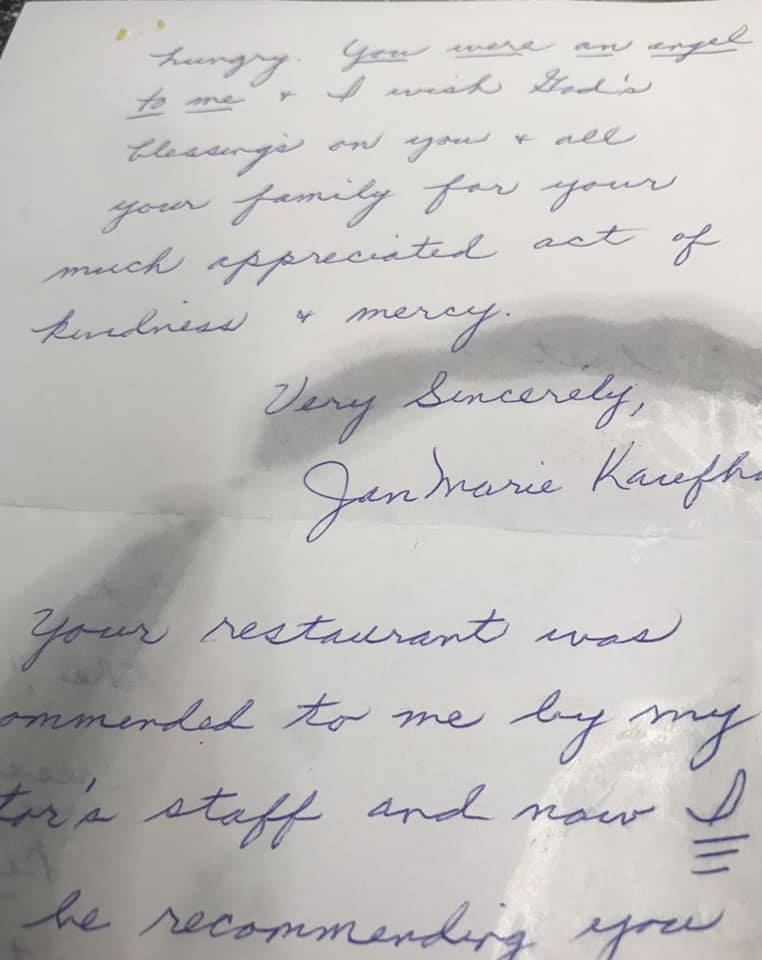 hungry. You were an angel
to me & I wish God's
blessings on you & all
your family for your
much appreciated act of
kindness & mercy.
Very Sincerely,
Jan Marie
Your restaurant was
ommended to me by my
tor's staff and now I
be recommending you